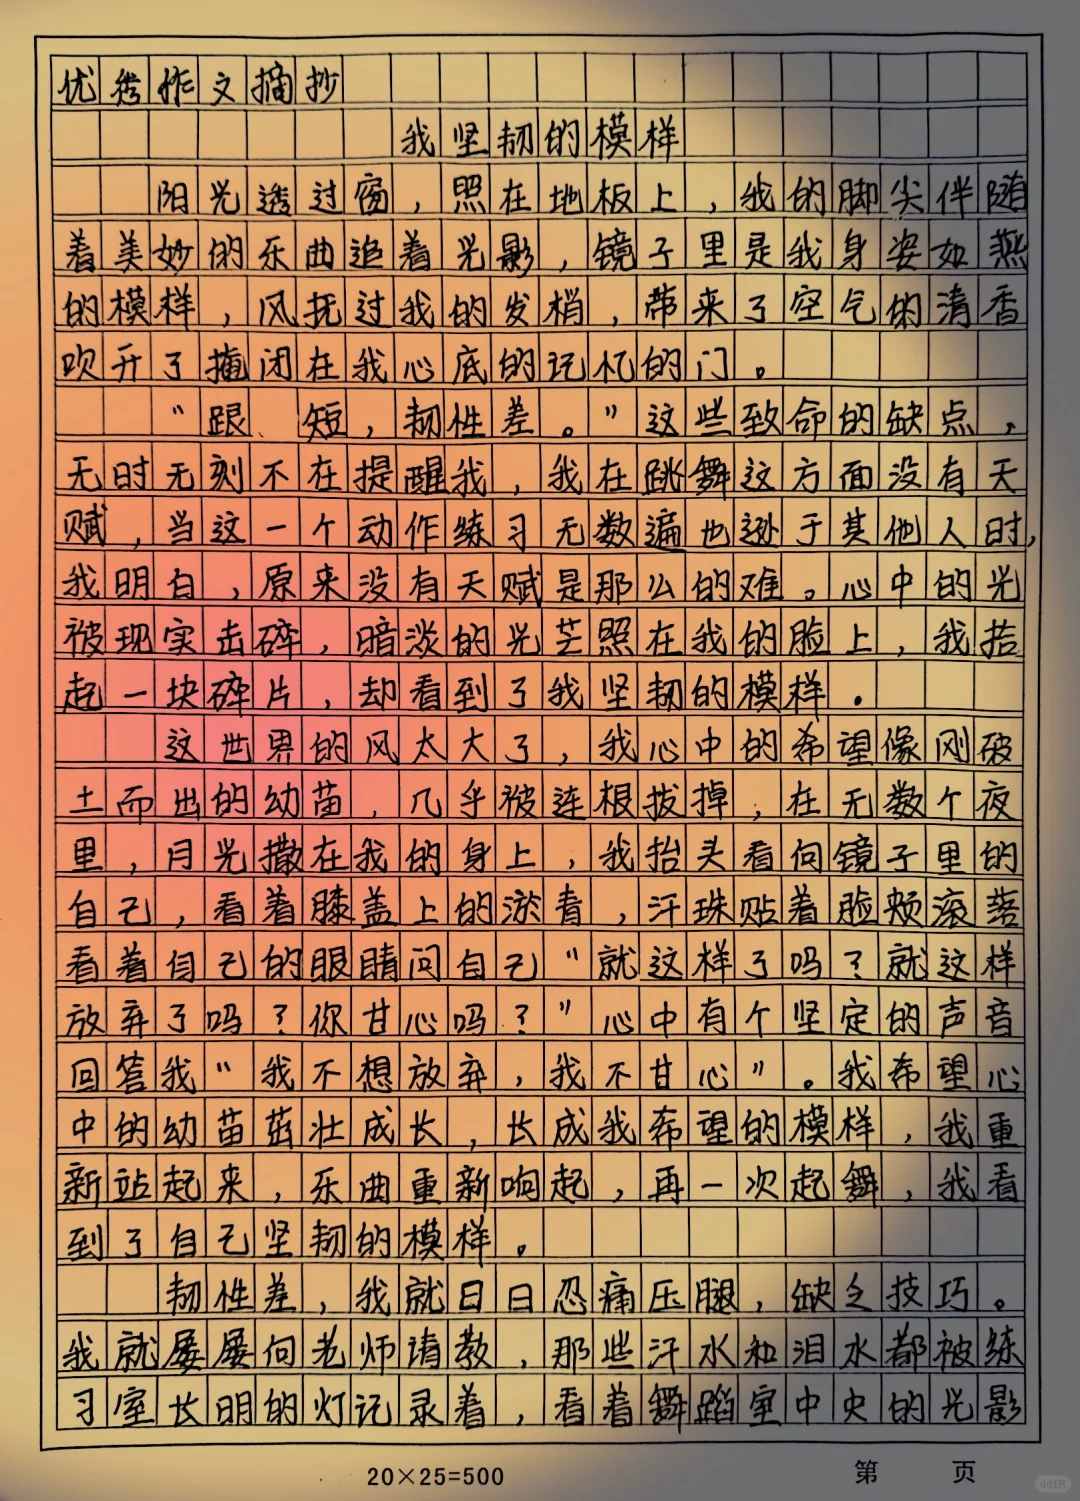 优秀作文摘抄
我坚韧的模样
阳光透过窗，照在地板上，我的脚尖伴随
着美妙的乐曲追着光影，镜子里是我身姿如燕
的模样，风抚过我的发梢，带来了空气的清香
吹开了掩闭在我心底的记忆的门。
“跟、短，韧性差。”这些致命的缺点，
无时无刻不在提醒我，我在跳舞这方面没有天
赋，当这一个动作练习无数遍也逊于其他人时，
我明白，原来没有天赋是那么的难。心中的光
被现实击碎，暗淡的光芒照在我的脸上，我拾
起一块碎片，却看到了我坚韧的模样。
这世界的风太大了，我心中的希望像刚破
土而出的幼苗，几乎被连根拔掉，在无数个夜
里，月光撒在我的身上，我抬头看向镜子里的
自己，看着膝盖上的淤青，汗珠贴着脸颊滚落
看着自己的眼睛问自己“就这样了吗？就这样
放弃了吗？你甘心吗？”心中有个坚定的声音
回答我“我不想放弃，我不甘心”。我希望心
中的幼苗茁壮成长，长成我希望的模样，我重
新站起来，乐曲重新响起，再一次起舞，我看
到了自己坚韧的模样。
韧性差，我就日日忍痛压腿，缺乏技巧。
我就屡屡向老师请教，那些汗水和泪水都被练
习室长明的灯记录着，看着舞蹈室中央的光影
20×25=500
第 页
小红书